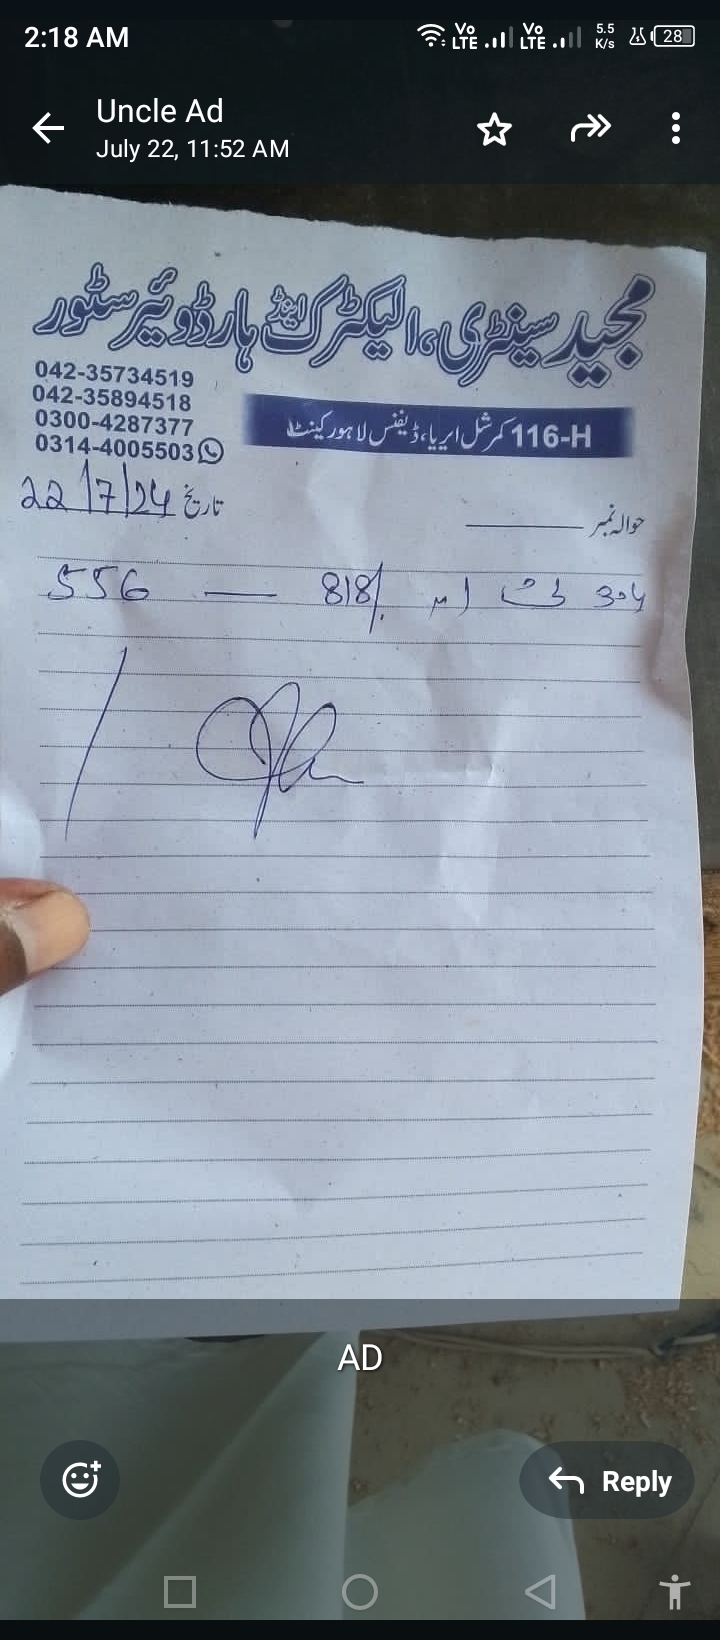 2:18 AM Vo LTE Vo LTE 5.5 K/s 28
Uncle Ad
July 22, 11:52 AM
مجید سینٹری، الیکٹرک اینڈ ہارڈویئر سٹور
042-35734519
042-35894518
0300-4287377
0314-4005503
116-H کمرشل ایریا، ڈیفنس لاہور کینٹ
تاریخ 22/7/24
حوالہ نمبر
304 818/. — 556
AD
Reply